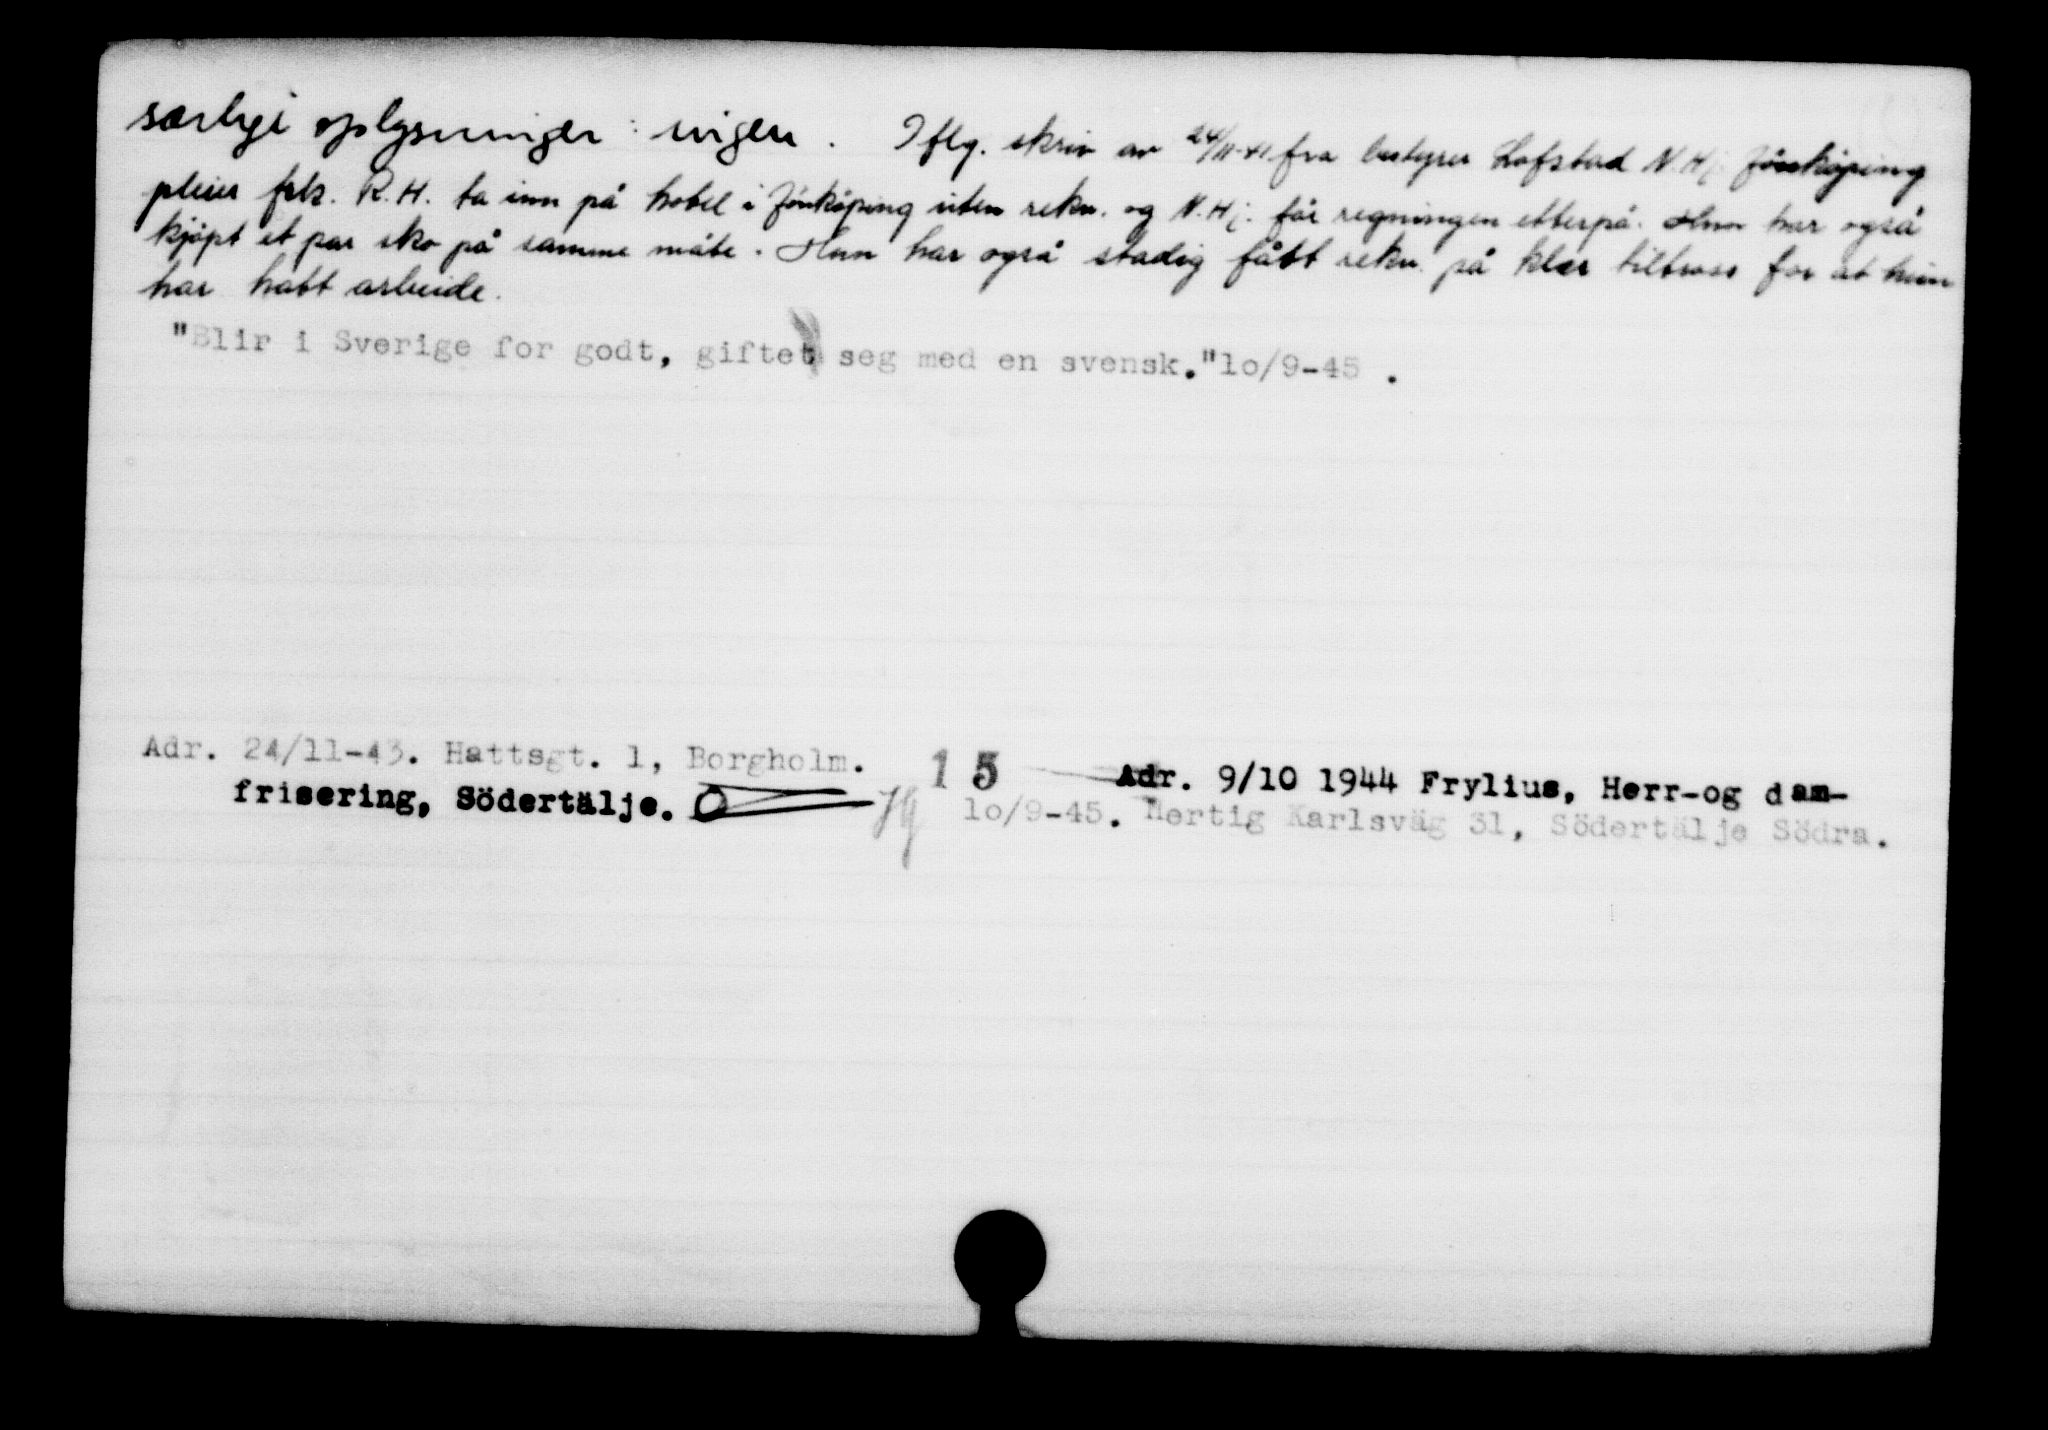 særlige oplysninger : ingen . Iflg. skriv av 24/11-41 fra bestyrer Lofstad N.Hj. Jönköping
pleier frk. R.H. ta inn på hotel i Jönköping uten rekv. og N.Hj. får regningen etterpå. Hun har også
kjöpt et par sko på samme måte. Hun har også stadig fått rekv. på klær tiltross for at hun
har hatt arbeide.
"Blir i Sverige for godt, giftet seg med en svensk."lo/9-45 .
Adr. 24/11-43. Hattsgt. 1, Borgholm. 15 Adr. 9/10 1944 Frylius, Herr-og dam-
frisering, Södertälje. lo/9-45. Hertig Karlsväg 31, Södertälje Södra.